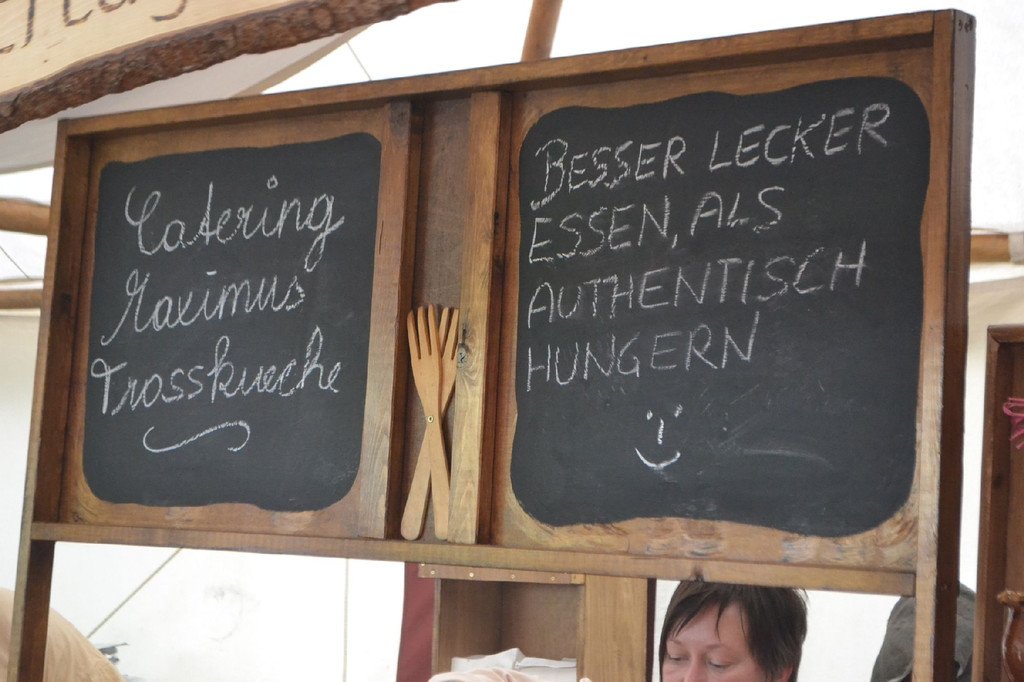 Catering
Maximus
Trosskueche
BESSER LECKER
ESSEN, ALS
AUTHENTISCH
HUNGERN